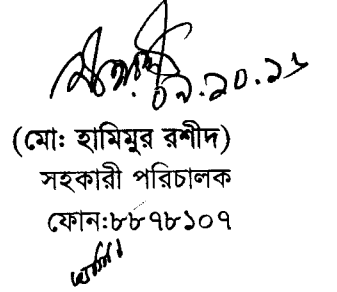 ০৯.১০.১১
(মো: হামিমুর রশীদ)
সহকারী পরিচালক
ফোন:৮৮৭৮১০৭